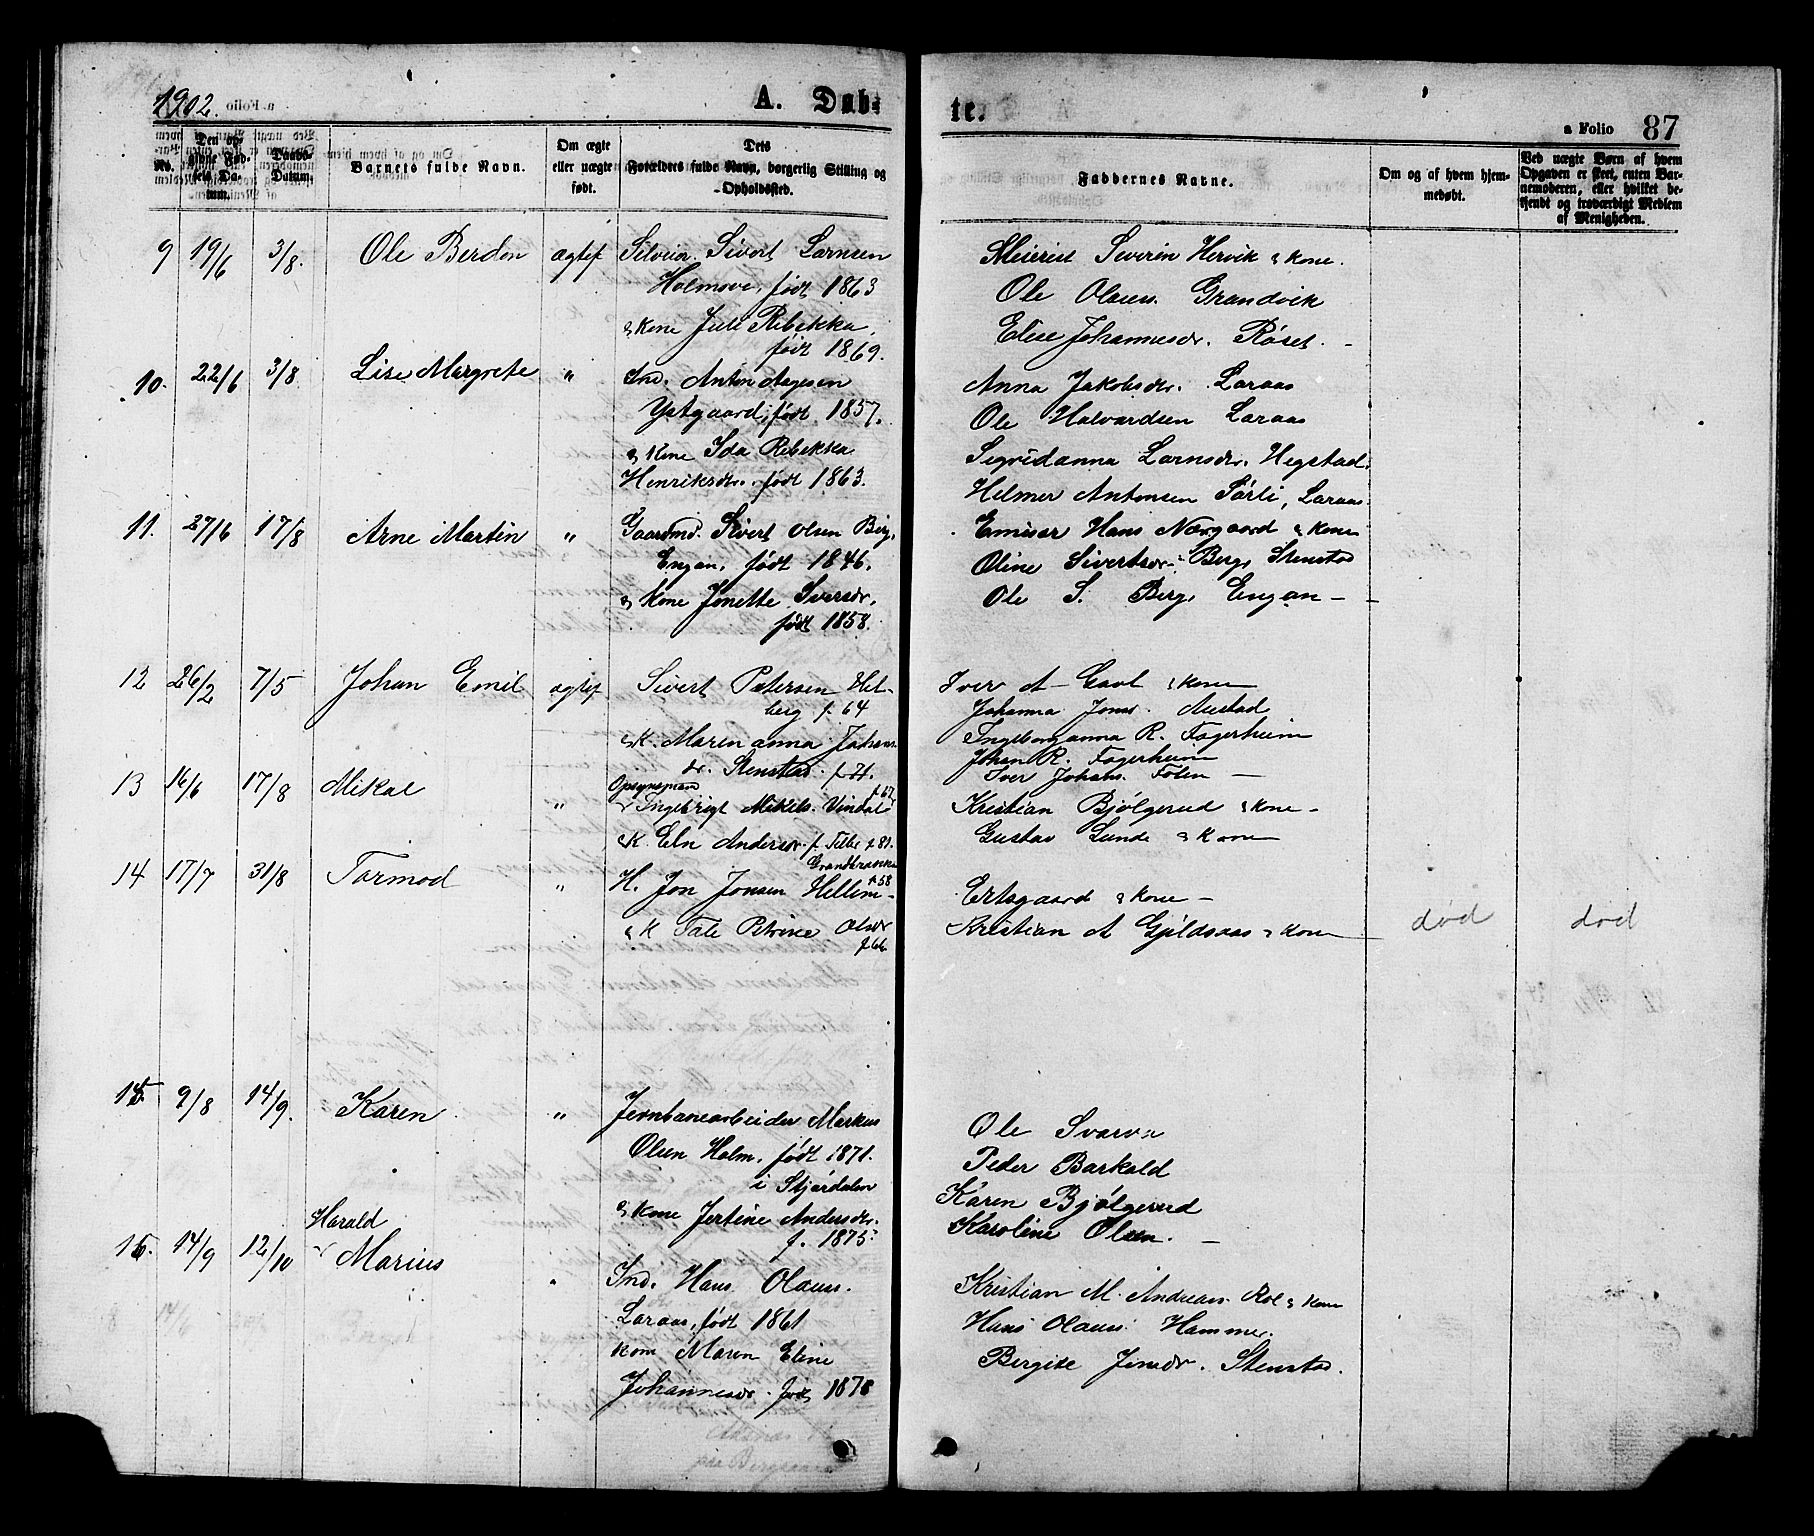 1902.
a Folio
A. Døb-
te.
a Folio 87
No.
Den opgivne Fødsels Datum.
Daabs-Datum.
Barnets fulde Navn.
Om ægte eller uægte født.
Dets Forældres fulde Navn, borgerlig Stilling og Opholdssted.
Faddernes Navne.
Om og af hvem hjemmedøbt.
Ved uægte Børn af hvem Opgaven er skeet, enten Barnemoderen, eller hvilket bekjendt og troværdigt Medlem af Menigheden.
9 19/6 3/8. Ole Berdon ægtef Sivert Larnsen
Holmove, født 1863
& Kone Juli Rebekka,
født 1869.
Meierist Severin Hervik & Kone.
Ole Olauss. Grandvik
Eline Johannesdr. Røset. -
10. 22/6 3/8 Lise Margrete " Ind. Anton Aagesen
Ystgaard, født 1857.
& Kone Ida Rebekka
Henriksdr. født 1863.
Anna Jakobsdr. Laraas
Ole Halvardsen Laraas
Sigridanna Larnsdr. Hegstad.
Hilmer Antonsen Sørli, Laraas.
11. 27/6 17/8 Arne Martin " Gaardmd. Sivert Olsen Berg,
Engan, født 1846.
& Kone Jonette Iversdr,
født 1858.
Emissær Hans Nørgaard & Kone
Oline Sivertsdr. Berg, Stenstad
Ole S. Berg, Engan - -
12 26/2 7/5 Johan Emil ægtef Sivert Petersen Hel-
berg f. 64
& K. Maren anna Johans
dr. Stenstad. f. 71.
Iver A Gavl & Kone
Johanna Jonsd. Mustad
Ingeborganna R. Fagerheim
Johan R. Fagerheim
Iver Johans. Følen -
13 16/6 17/8 Mikal " Opsynsmand
Ingebrigt Mikels. Vindal f. 67
& K. Eln Andersdr. f. Tiller f. 81.
Kristian Bjølgerud & Kone -
Gustav Lunde & Kone
14 17/7 31/8 Tormod " H. Jon Jonsen Hellem - f. 58
& K Tale Petrine Olsdr
f. 66
Ertsgaard & Kone -
Kristian A Gjeldsaas & Kone
død død
15 9/8 14/9. Karen " Jernbanearbeider Markus
Olsen Holm, født 1871.
i Stjørdalen
& Kone Jertine Andersdr.
f. 1875.
Ole Svarva
Peder Barkald
Karen Bjølgerud
Karoline Olsen. -
16. 14/9 12/10 Harald
Marius " Ind. Hans Olauss.
Laraas, født 1861
Kone Maren Eline
Johannesdr. født 1878
Kristian M. Andreas. Rol & Kone
Hans Olauss Hammer.
Bergite Jonsdr. Stenstad.